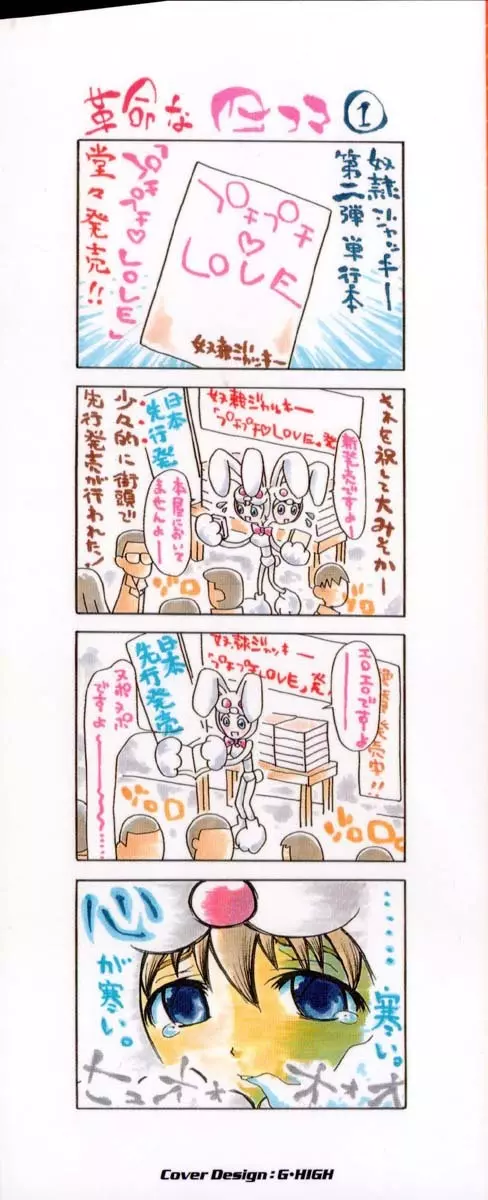 革命な
①
奴隷ジャッキー
第二弾単行本
プチプチ♡LOVE
奴隷ジャッキー
「プチプチ♡LOVE」
堂々発売!!
それを祝して大みそかー
新発売ですよー
奴隷ジャッキー
「プチプチ♡LOVE」発
日本
先行発
本屋において
ませんよー
ゾロ
ゾロ
少々的に街頭で
先行発売が行われた!
エロエロですよ
発売中!!
奴隷ジャッキー
「プチプチLOVE」発
日本
先行発売
ヌポヌポ
ですよ〜
ゾロロ
ゾロロ
……寒い。
心
が寒い。
Cover Design : G・HIGH